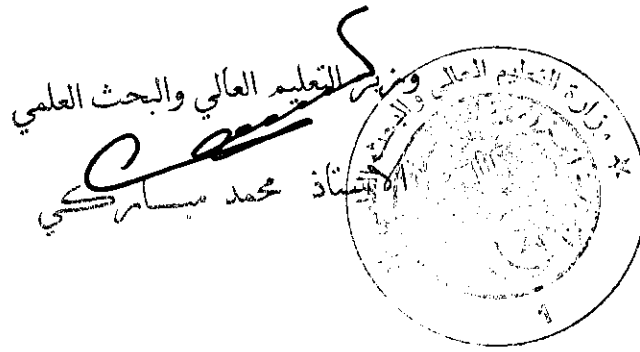 وزير التعليم العالي والبحث العلمي
الأستاذ محمد مباركي
وزارة التعليم العالي والبحث
1